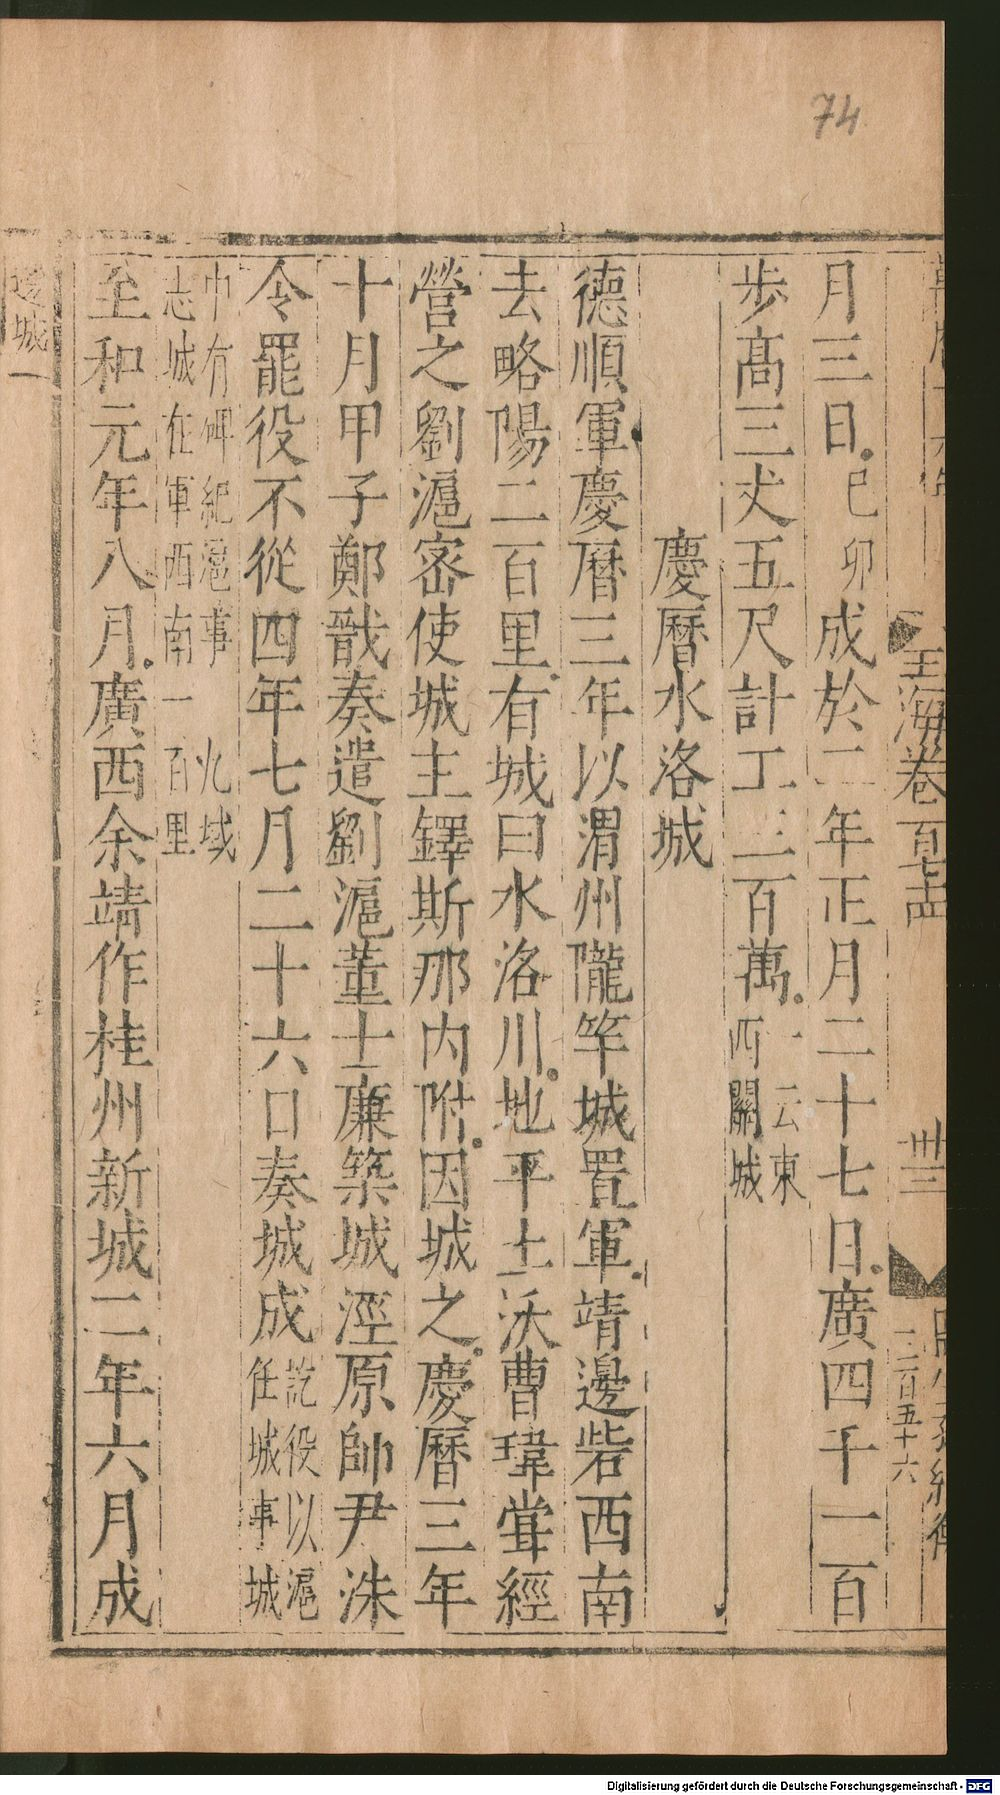 74
玉海卷一百七十四
卅三
三百五十六
月三日己卯成於二年正月二十七日廣四千一百
步髙三丈五尺計工三百萬一云東西關城
慶曆水洛城
德順軍慶曆三年以渭州隴竿城置軍靖邊砦西南
去略陽二百里有城曰水洛川地平土沃曹瑋甞經
營之劉滬密使城主鐸斯那内附因城之慶曆三年
十月甲子鄭戩奏遣劉滬董士廉築城涇原帥尹洙
令罷役不從四年七月二十六日奏城成訖役以滬任城事城
中有碑紀滬事九域志城在軍西南一百里
至和元年八月廣西余靖作桂州新城二年六月成
邊城一
Digitalisierung gefördert durch die Deutsche Forschungsgemeinschaft - DFG